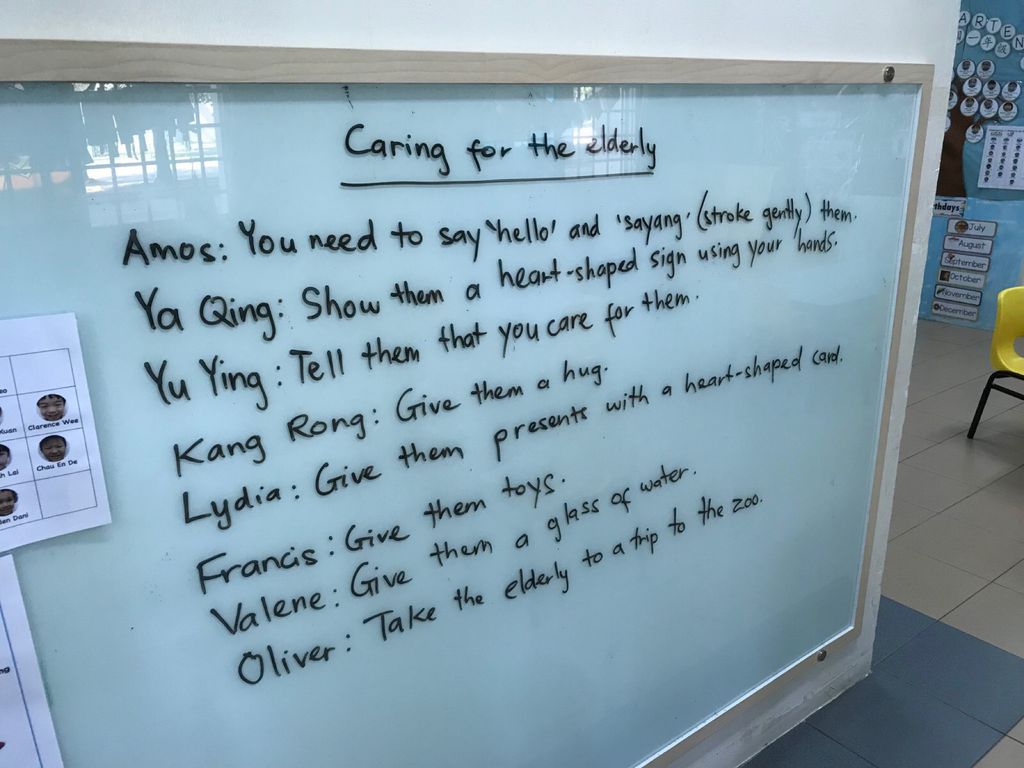 Caring for the elderly
Amos: You need to say 'hello' and 'sayang' (stroke gently) them.
Ya Qing: Show them a heart-shaped sign using your hands.
Yu Ying: Tell them that you care for them.
Kang Rong: Give them a hug.
Lydia: Give them presents with a heart-shaped card.
Francis: Give them toys.
Valene: Give them a glass of water.
Oliver: Take the elderly to a trip to the zoo.
Clarence Wee
Chau En De
July
August
September
October
November
December